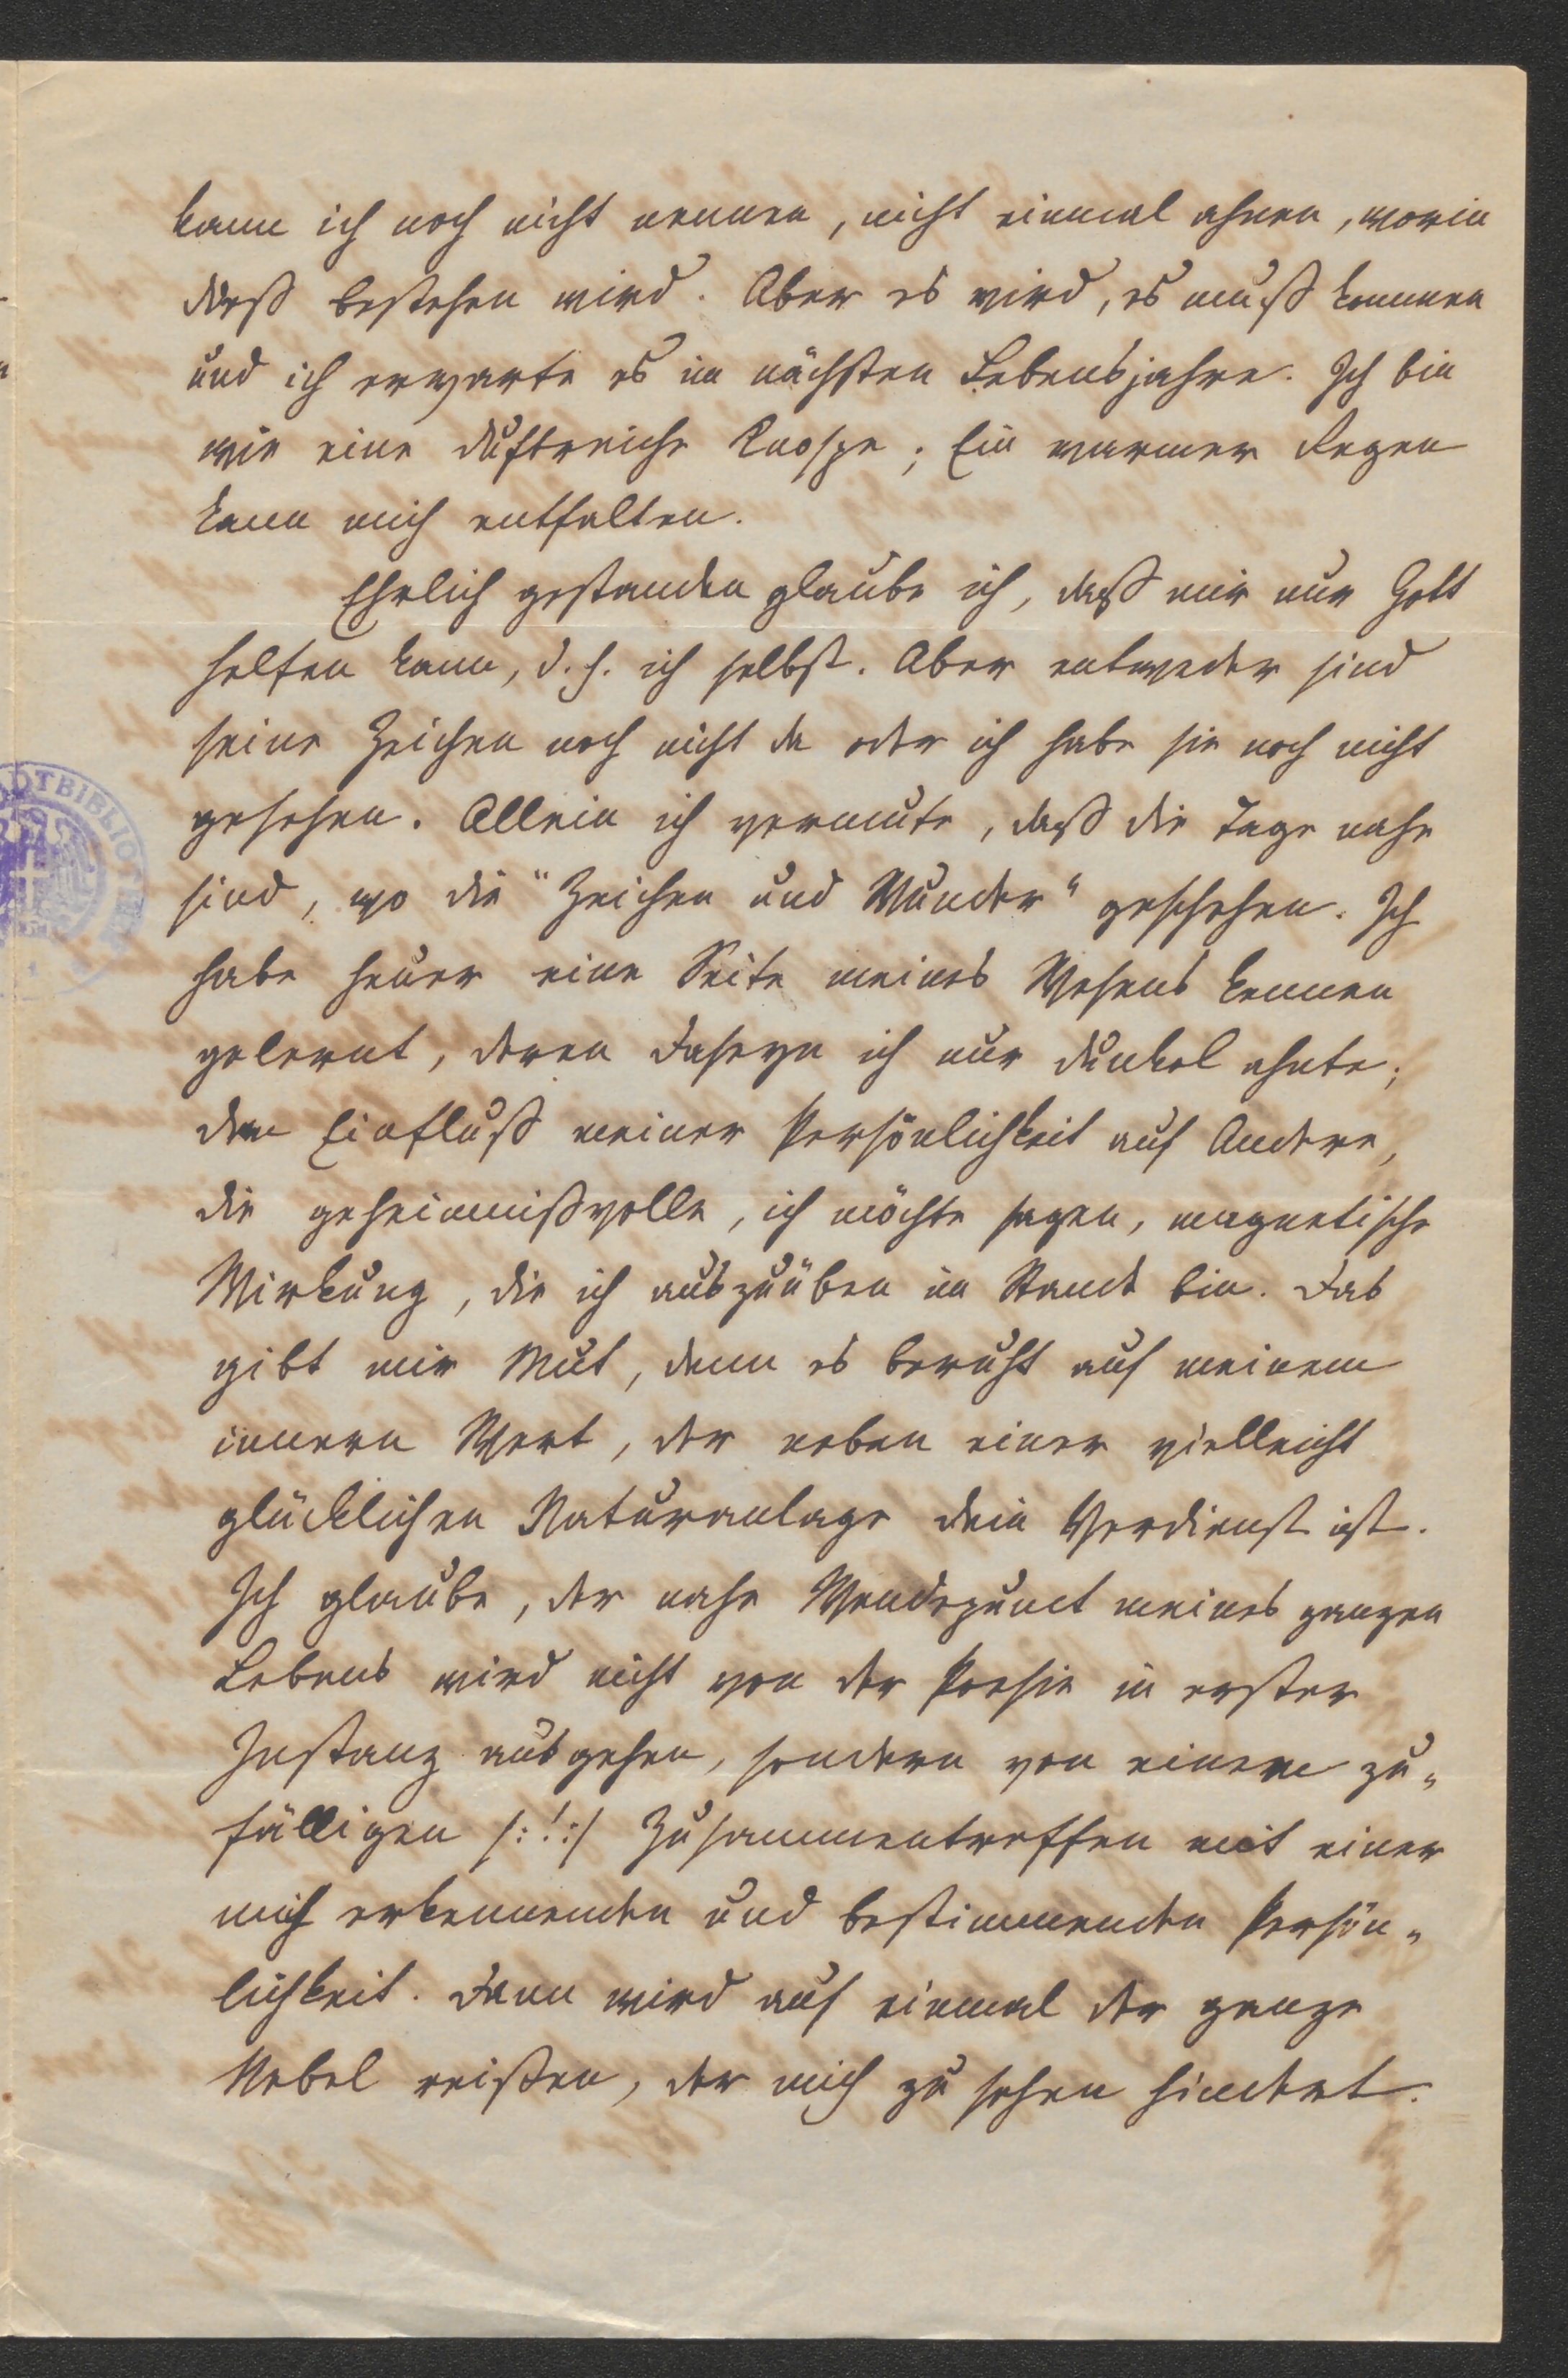 kann ich noch nicht nennen, nicht einmal ahnen, worin
dieß bestehen wird. Aber es wird, es muß kommen
und ich erwarte es im nächsten Lebensjahre. Ich bin
wie eine duftreiche Knospe; Ein warmer Regen
kann mich entfalten.
Ehrlich gestanden glaube ich, daß mir nur Gott
helfen kann, d. h. ich selbst. Aber entweder sind
seine Zeichen noch nicht da oder ich habe sie noch nicht
gesehen. Allein ich vermute, daß die Tage nahe
sind, wo die "Zeichen und Wunder" geschehen. Ich
habe heuer eine Seite meines Wesens kennen
gelernt, deren Daseyn ich nur dunkel ahnte;
den Einfluß meiner Persönlichkeit auf Andere,
die geheimnißvolle, ich möchte sagen, magnetische
Wirkung, die ich auszuüben im Stande bin. Das
gibt mir Mut, denn es beruht auf meinem
innern Wert, der neben einer vielleicht
glücklichen Naturanlage dein Verdienst ist.
Ich glaube, der nahe Wendepunct meines ganzen
Lebens wird nicht von der Poesie in erster
Instanz ausgehen, sondern von einem zu„
fälligen /:!:/ Zusammentreffen mit einer
mich erkennenden und bestimmenden Persön„
lichkeit. Dann wird auf einmal der ganze
Nebel reißen, der mich zu sehen hindert.